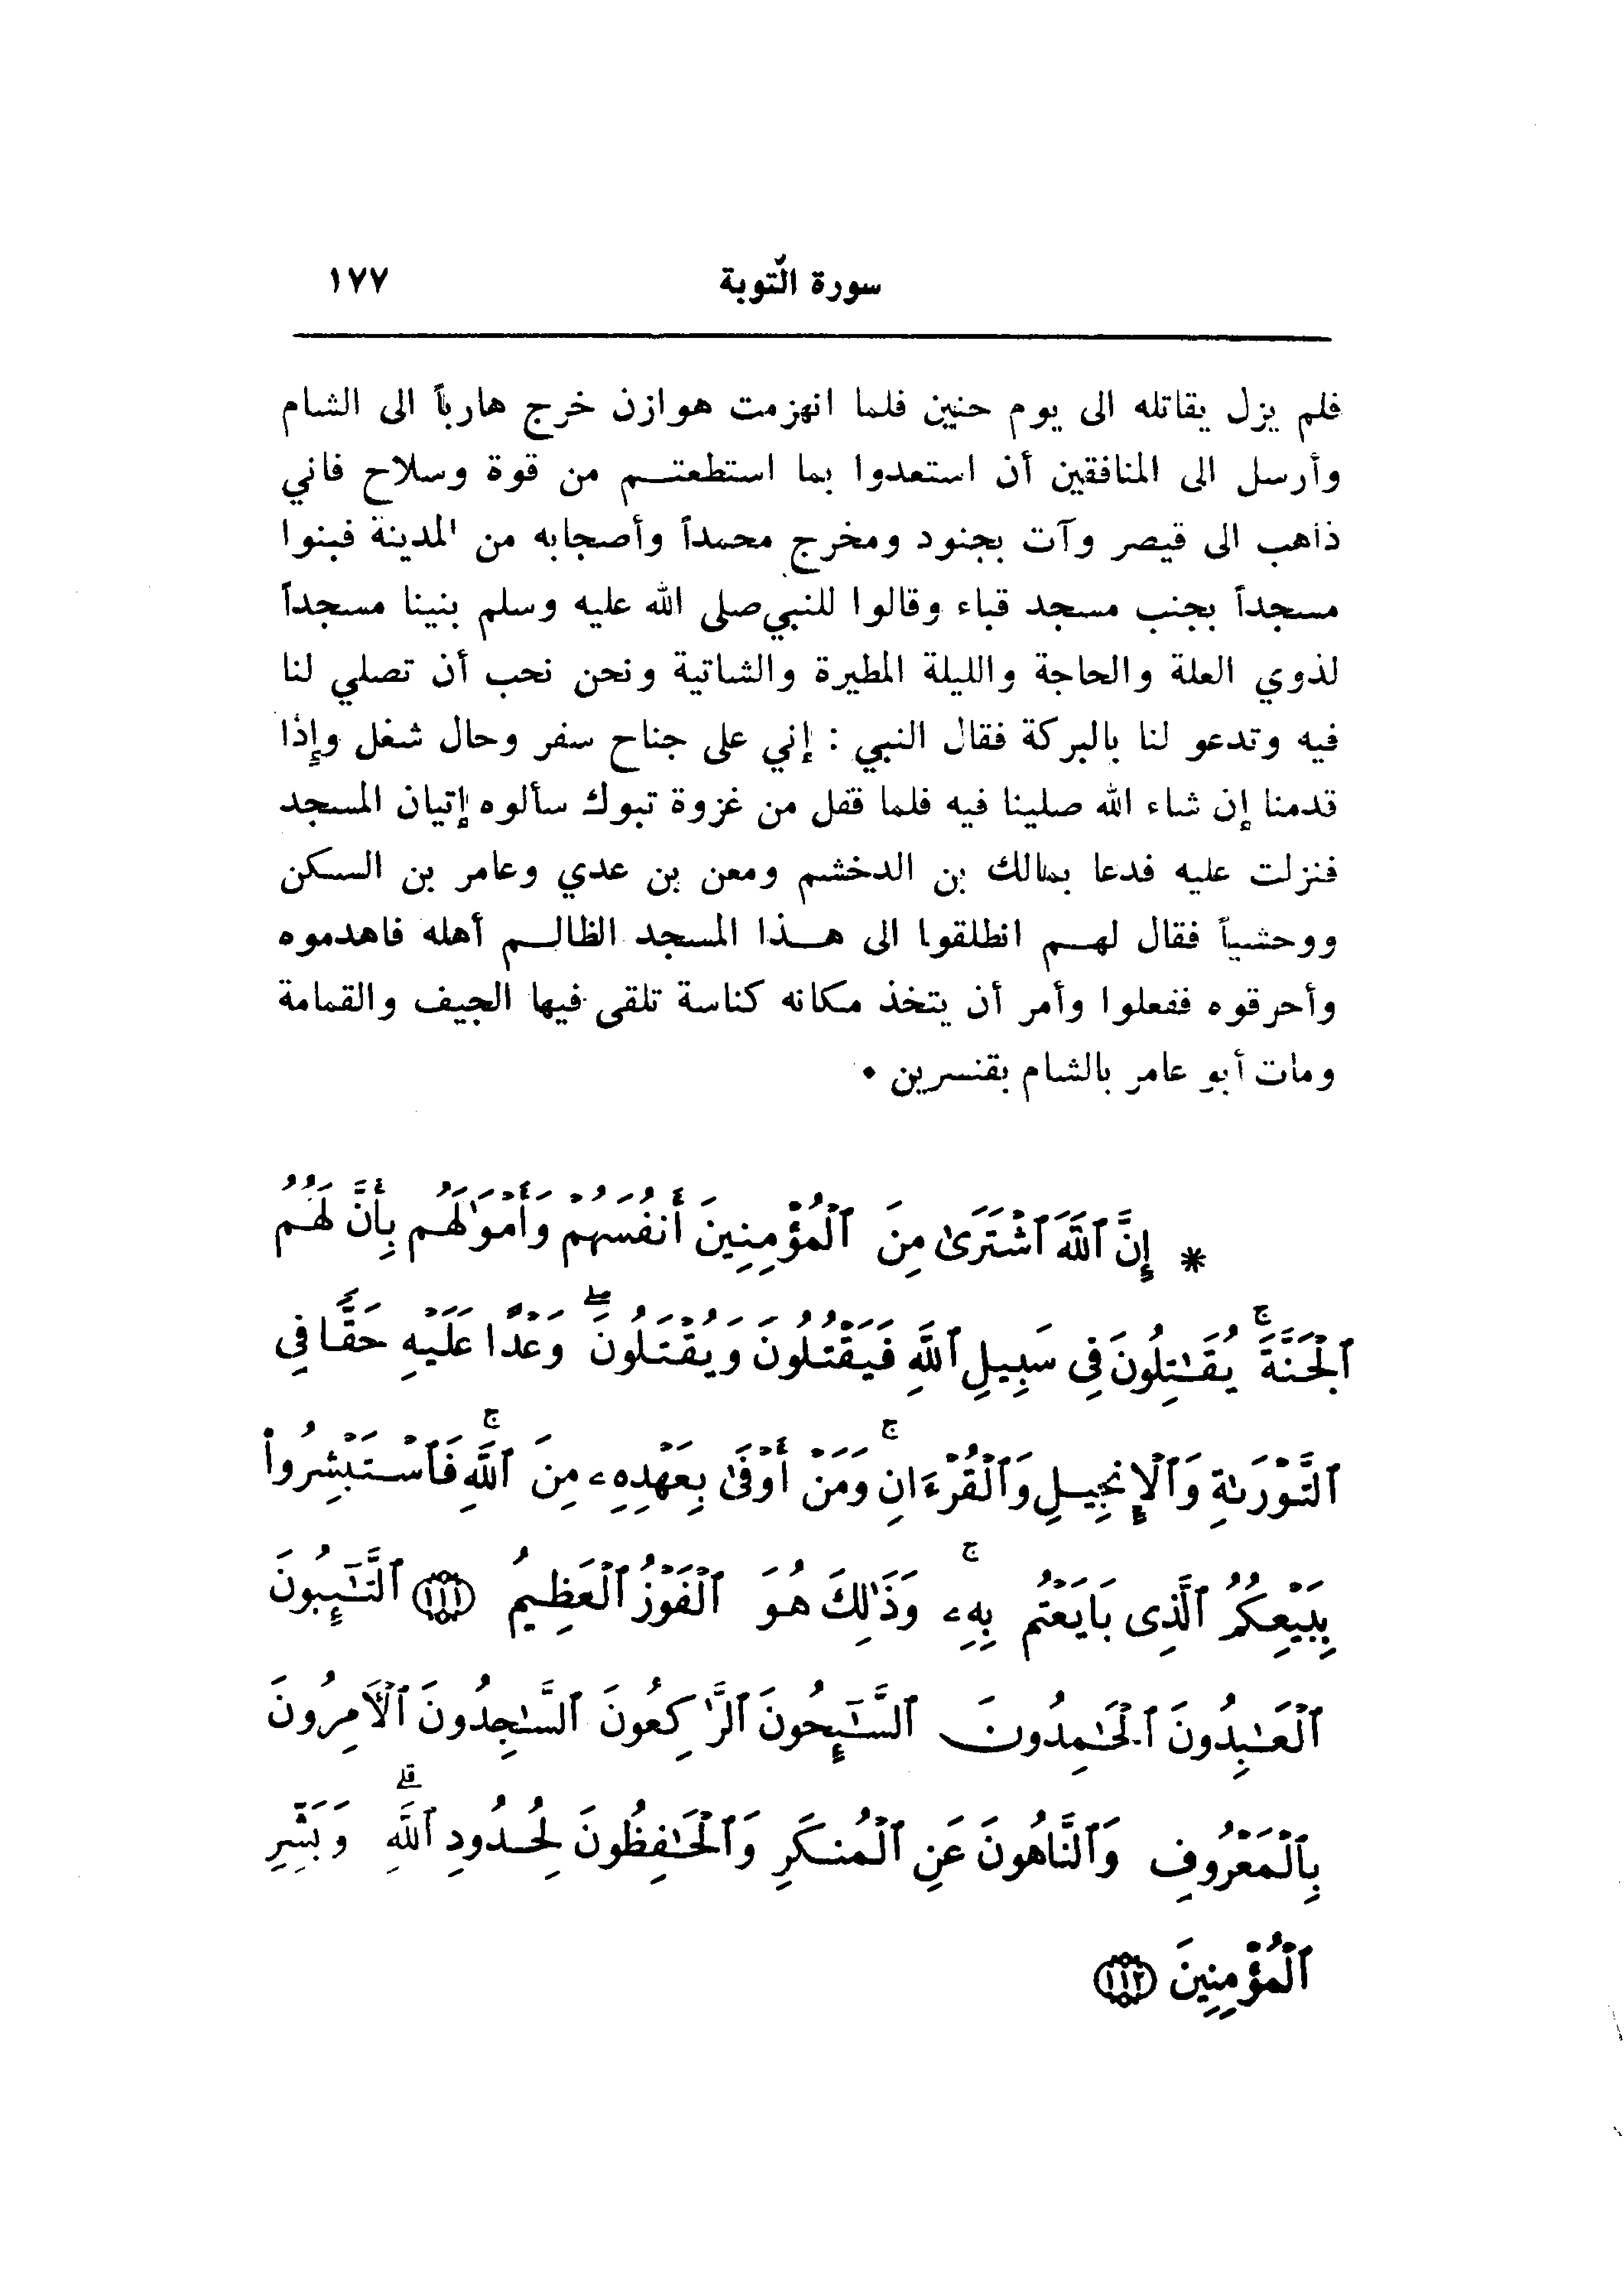 سورة التّوبة ١٧٧
فلم يزل يقاتله الى يوم حنين فلما انهزمت هوازن خرج هارباً الى الشام
وأرسل الى المنافقين أن استعدوا بما استطعتم من قوة وسلاح فاني
ذاهب الى قيصر وآت بجنود ومخرج محمداً وأصحابه من المدينة فبنوا
مسجداً بجنب مسجد قباء وقالوا للنبي صلى الله عليه وسلم بنينا مسجداً
لذوي العلة والحاجة والليلة المطيرة والشاتية ونحن نحب أن تصلي لنا
فيه وتدعو لنا بالبركة فقال النبي : إني على جناح سفر وحال شغل وإذا
قدمنا إن شاء الله صلينا فيه فلما قفل من غزوة تبوك سألوه إتيان المسجد
فنزلت عليه فدعا بمالك بن الدخشم ومعن بن عدي وعامر بن السكن
ووحشياً فقال لهم انطلقوا الى هذا المسجد الظالم أهله فاهدموه
وأحرقوه ففعلوا وأمر أن يتخذ مكانه كناسة تلقى فيها الجيف والقمامة
ومات أبو عامر بالشام بقنسرين ٠
* إِنَّ ٱللَّهَ ٱشْتَرَىٰ مِنَ ٱلْمُؤْمِنِينَ أَنفُسَهُمْ وَأَمْوَٰلَهُم بِأَنَّ لَهُمُ
ٱلْجَنَّةَ ۚ يُقَٰتِلُونَ فِى سَبِيلِ ٱللَّهِ فَيَقْتُلُونَ وَيُقْتَلُونَ ۖ وَعْدًا عَلَيْهِ حَقًّا فِى
ٱلتَّوْرَىٰةِ وَٱلْإِنجِيلِ وَٱلْقُرْءَانِ ۚ وَمَنْ أَوْفَىٰ بِعَهْدِهِۦ مِنَ ٱللَّهِ ۚ فَٱسْتَبْشِرُوا۟
بِبَيْعِكُمُ ٱلَّذِى بَايَعْتُم بِهِۦ ۚ وَذَٰلِكَ هُوَ ٱلْفَوْزُ ٱلْعَظِيمُ ﴿١١١﴾ ٱلتَّٰٓئِبُونَ
ٱلْعَٰبِدُونَ ٱلْحَٰمِدُونَ ٱلسَّٰٓئِحُونَ ٱلرَّٰكِعُونَ ٱلسَّٰجِدُونَ ٱلْأَمِرُونَ
بِٱلْمَعْرُوفِ وَٱلنَّاهُونَ عَنِ ٱلْمُنكَرِ وَٱلْحَٰفِظُونَ لِحُدُودِ ٱللَّهِ ۗ وَبَشِّرِ
ٱلْمُؤْمِنِينَ ﴿١١٢﴾